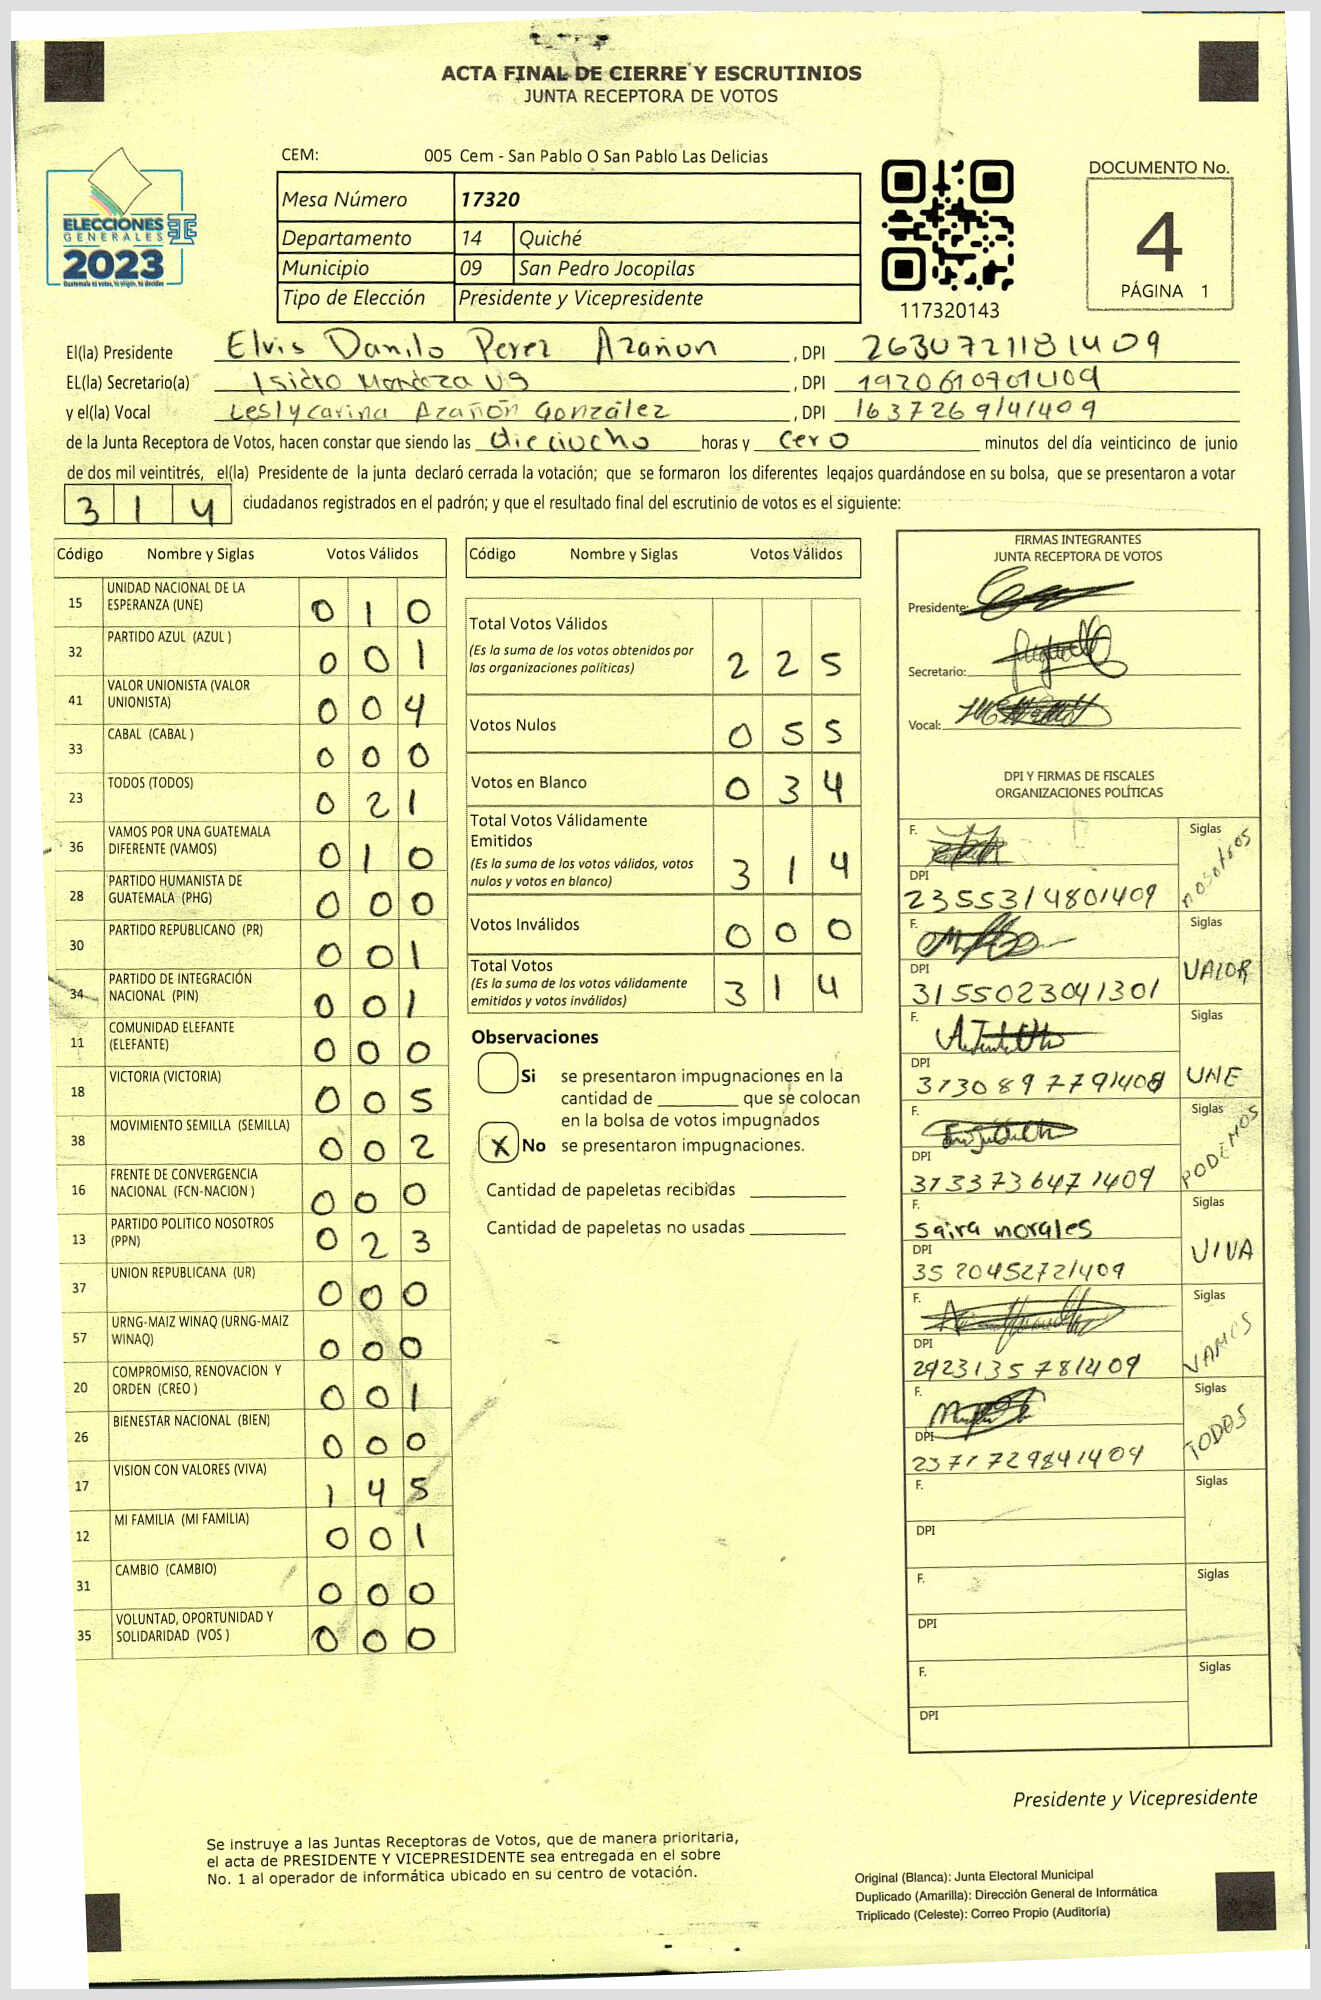 ACTA FINAL DE CIERRE Y ESCRUTINIOS
JUNTA RECEPTORA DE VOTOS
CEM: 005 Cem - San Pablo O San Pablo Las Delicias
ELECCIONES
GENERALES
2023
Mesa Número 17320
Departamento 14 Quiché
Municipio 09 San Pedro Jocopilas
Tipo de Elección Presidente y Vicepresidente
117320143
DOCUMENTO No.
4
PÁGINA 1
El(la) Presidente Elvis Danilo Perez Azañon , DPI 2630721181409
EL(la) Secretario(a) Isidro Mendoza Us , DPI 1920610701409
y el(la) Vocal Leslycarina Azañón González , DPI 1637269141409
de la Junta Receptora de Votos, hacen constar que siendo las dieciocho horas y cero minutos del día veinticinco de junio
de dos mil veintitrés, el(la) Presidente de la junta declaró cerrada la votación; que se formaron los diferentes legajos guardándose en su bolsa, que se presentaron a votar
314 ciudadanos registrados en el padrón; y que el resultado final del escrutinio de votos es el siguiente:
Código Nombre y Siglas Votos Válidos
15 UNIDAD NACIONAL DE LA ESPERANZA (UNE) 010
32 PARTIDO AZUL (AZUL ) 001
41 VALOR UNIONISTA (VALOR UNIONISTA) 004
33 CABAL (CABAL ) 000
23 TODOS (TODOS) 021
36 VAMOS POR UNA GUATEMALA DIFERENTE (VAMOS) 010
28 PARTIDO HUMANISTA DE GUATEMALA (PHG) 000
30 PARTIDO REPUBLICANO (PR) 001
34 PARTIDO DE INTEGRACIÓN NACIONAL (PIN) 001
11 COMUNIDAD ELEFANTE (ELEFANTE) 000
18 VICTORIA (VICTORIA) 005
38 MOVIMIENTO SEMILLA (SEMILLA) 002
16 FRENTE DE CONVERGENCIA NACIONAL (FCN-NACION ) 000
13 PARTIDO POLITICO NOSOTROS (PPN) 023
37 UNION REPUBLICANA (UR) 000
57 URNG-MAIZ WINAQ (URNG-MAIZ WINAQ) 000
20 COMPROMISO, RENOVACION Y ORDEN (CREO ) 001
26 BIENESTAR NACIONAL (BIEN) 000
17 VISION CON VALORES (VIVA) 145
12 MI FAMILIA (MI FAMILIA) 001
31 CAMBIO (CAMBIO) 000
35 VOLUNTAD, OPORTUNIDAD Y SOLIDARIDAD (VOS ) 000
Código Nombre y Siglas Votos Válidos
Total Votos Válidos
(Es la suma de los votos obtenidos por
las organizaciones políticas) 225
Votos Nulos 055
Votos en Blanco 034
Total Votos Válidamente
Emitidos
(Es la suma de los votos válidos, votos
nulos y votos en blanco) 314
Votos Inválidos 000
Total Votos
(Es la suma de los votos válidamente
emitidos y votos inválidos) 314
Observaciones
Si se presentaron impugnaciones en la
cantidad de ________ que se colocan
en la bolsa de votos impugnados
X No se presentaron impugnaciones.
Cantidad de papeletas recibidas
Cantidad de papeletas no usadas
FIRMAS INTEGRANTES
JUNTA RECEPTORA DE VOTOS
Presidente:
Secretario:
Vocal:
DPI Y FIRMAS DE FISCALES
ORGANIZACIONES POLÍTICAS
F. Siglas nosotros
DPI 2355314801409
F. Siglas VALOR
DPI 3155023041301
F. Siglas UNE
DPI 3130897791408
F. Siglas PODEMOS
DPI 3133736471409
F. Saira morales Siglas VIVA
DPI 3520452721409
F. Siglas VAMOS
DPI 2923135781409
F. Siglas TODOS
DPI 2371729841409
F. Siglas
DPI
F. Siglas
DPI
F. Siglas
DPI
Presidente y Vicepresidente
Se instruye a las Juntas Receptoras de Votos, que de manera prioritaria,
el acta de PRESIDENTE Y VICEPRESIDENTE sea entregada en el sobre
No. 1 al operador de informática ubicado en su centro de votación.
Original (Blanca): Junta Electoral Municipal
Duplicado (Amarilla): Dirección General de Informática
Triplicado (Celeste): Correo Propio (Auditoría)